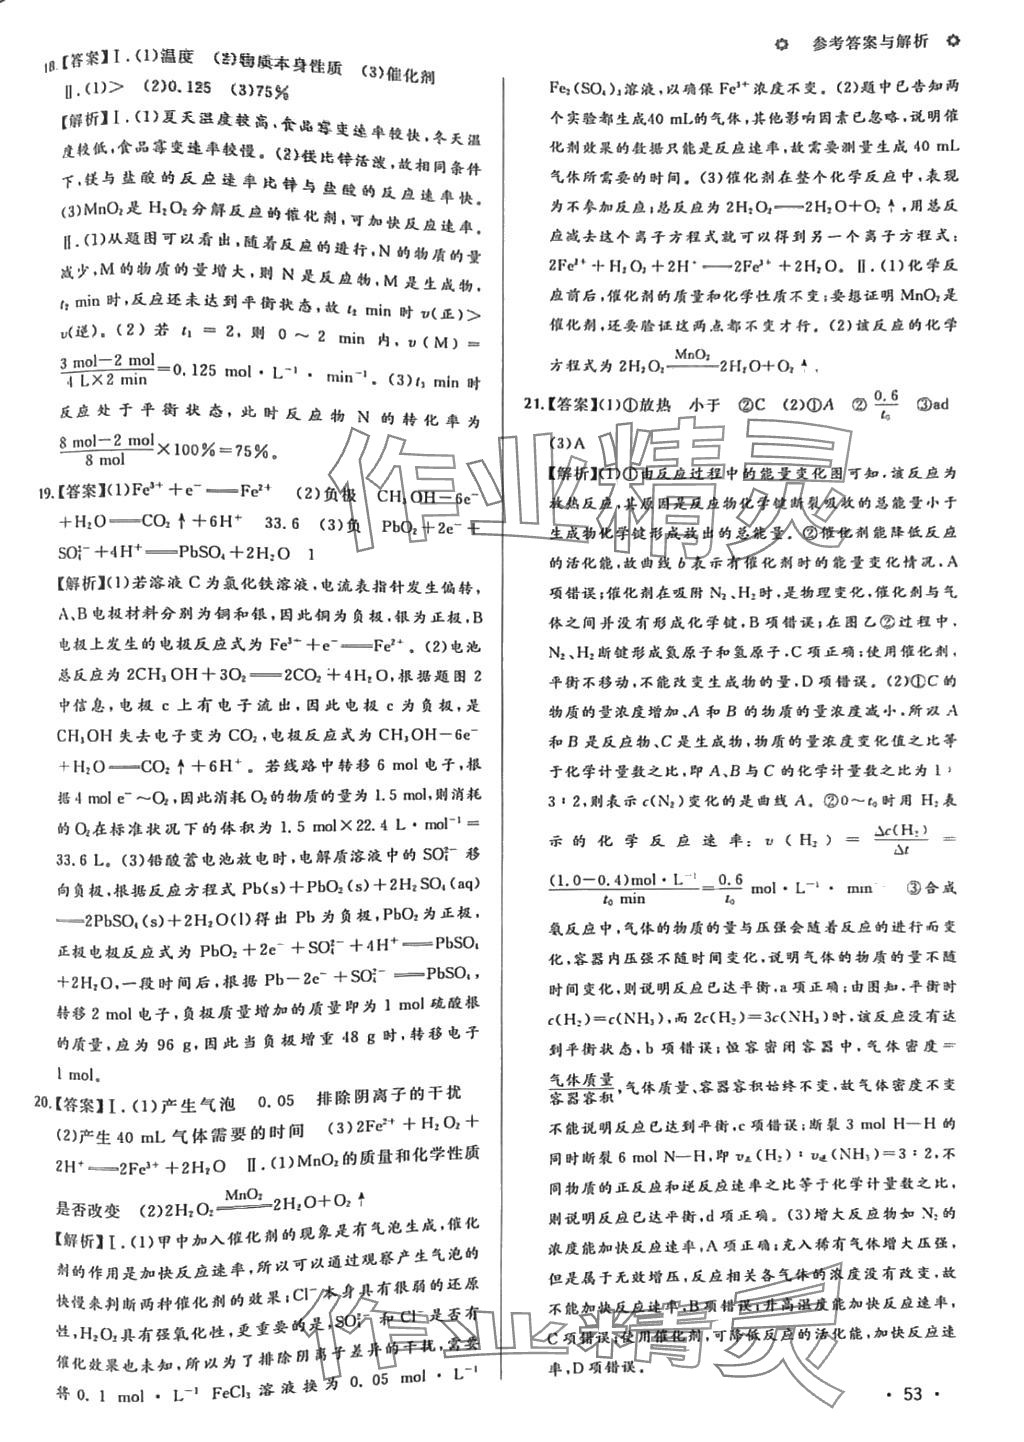 参考答案与解析
18.【答案】Ⅰ.(1)温度 (2)物质本身性质 (3)催化剂
Ⅱ.(1)> (2)0.125 (3)75%
【解析】Ⅰ.(1)夏天温度较高,食品霉变速率较快,冬天温
度较低,食品霉变速率较慢。(2)镁比锌活泼,故相同条件
下,镁与盐酸的反应速率比锌与盐酸的反应速率快。
(3)MnO₂是H₂O₂分解反应的催化剂,可加快反应速率。
Ⅱ.(1)从题图可以看出,随着反应的进行,N的物质的量
减少,M的物质的量增大,则N是反应物,M是生成物,
t₂ min时,反应还未达到平衡状态,故t₂ min时v(正)>
v(逆)。(2)若t₁=2,则0~2 min内,v(M)=
(3 mol-2 mol)/(4 L×2 min)=0.125 mol·L⁻¹·min⁻¹。(3)t₃ min时
反应处于平衡状态,此时反应物N的转化率为
(8 mol-2 mol)/(8 mol)×100%=75%。
19.【答案】(1)Fe³⁺+e⁻══Fe²⁺ (2)负极 CH₃OH-6e⁻
+H₂O══CO₂↑+6H⁺ 33.6 (3)负 PbO₂+2e⁻+
SO₄²⁻+4H⁺══PbSO₄+2H₂O 1
【解析】(1)若溶液C为氯化铁溶液,电流表指针发生偏转,
A、B电极材料分别为铜和银,因此铜为负极,银为正极,B
电极上发生的电极反应式为Fe³⁺+e⁻══Fe²⁺。(2)电池
总反应为2CH₃OH+3O₂══2CO₂+4H₂O,根据题图2
中信息,电极c上有电子流出,因此电极c为负极,是
CH₃OH失去电子变为CO₂,电极反应式为CH₃OH-6e⁻
+H₂O══CO₂↑+6H⁺。若线路中转移6 mol电子,根
据4 mol e⁻~O₂,因此消耗O₂的物质的量为1.5 mol,则消耗
的O₂在标准状况下的体积为1.5 mol×22.4 L·mol⁻¹=
33.6 L。(3)铅酸蓄电池放电时,电解质溶液中的SO₄²⁻移
向负极,根据反应方程式Pb(s)+PbO₂(s)+2H₂SO₄(aq)
══2PbSO₄(s)+2H₂O(l)得出Pb为负极,PbO₂为正极,
正极电极反应式为PbO₂+2e⁻+SO₄²⁻+4H⁺══PbSO₄
+2H₂O,一段时间后,根据Pb-2e⁻+SO₄²⁻══PbSO₄,
转移2 mol电子,负极质量增加的质量即为1 mol硫酸根
的质量,应为96 g,因此当负极增重48 g时,转移电子
1 mol。
20.【答案】Ⅰ.(1)产生气泡 0.05 排除阴离子的干扰
(2)产生40 mL气体需要的时间 (3)2Fe²⁺+H₂O₂+
2H⁺══2Fe³⁺+2H₂O Ⅱ.(1)MnO₂的质量和化学性质
是否改变 (2)2H₂O₂══(MnO₂)2H₂O+O₂↑
【解析】Ⅰ.(1)甲中加入催化剂的现象是有气泡生成,催化
剂的作用是加快反应速率,所以可以通过观察产生气泡的
快慢来判断两种催化剂的效果;Cl⁻本身具有很弱的还原
性,H₂O₂具有强氧化性,更重要的是,SO₄²⁻和Cl⁻是否有
催化效果也未知,所以为了排除阴离子差异的干扰,需要
将0.1 mol·L⁻¹ FeCl₃溶液换为0.05 mol·L⁻¹
Fe₂(SO₄)₃溶液,以确保Fe³⁺浓度不变。(2)题中已告知两
个实验都生成40 mL的气体,其他影响因素已忽略,说明催
化剂效果的数据只能是反应速率,故需要测量生成40 mL
气体所需要的时间。(3)催化剂在整个化学反应中,表现
为不参加反应;总反应为2H₂O₂══2H₂O+O₂↑,用总反
应减去这个离子方程式就可以得到另一个离子方程式:
2Fe²⁺+H₂O₂+2H⁺══2Fe³⁺+2H₂O。Ⅱ.(1)化学反
应前后,催化剂的质量和化学性质不变;要想证明MnO₂是
催化剂,还要验证这两点都不变才行。(2)该反应的化学
方程式为2H₂O₂══(MnO₂)2H₂O+O₂↑.
21.【答案】(1)①放热 小于 ②C (2)①A ②0.6/t₀ ③ad
(3)A
【解析】(1)①由反应过程中的能量变化图可知,该反应为
放热反应,其原因是反应物化学键断裂吸收的总能量小于
生成物化学键形成放出的总能量。②催化剂能降低反应
的活化能,故曲线b表示有催化剂时的能量变化曲线,A
项错误;催化剂在吸附N₂、H₂时,是物理变化,催化剂与气
体之间并没有形成化学键,B项错误;在图乙②过程中,
N₂、H₂断键形成氮原子和氢原子,C项正确;使用催化剂,
平衡不移动,不能改变生成物的量,D项错误。(2)①C的
物质的量浓度增加、A和B的物质的量浓度减小,所以A
和B是反应物、C是生成物,物质的量浓度变化值之比等
于化学计量数之比,即A、B与C的化学计量数之比为1∶
3∶2,则表示c(N₂)变化的是曲线A。②0~t₀时用H₂表
示的化学反应速率:v(H₂)=Δc(H₂)/Δt=
(1.0-0.4)mol·L⁻¹/t₀ min=0.6/t₀ mol·L⁻¹·min⁻¹ ③合成
氨反应中,气体的物质的量与压强会随着反应的进行而变
化,容器内压强不随时间变化,说明气体的物质的量不随
时间变化,则说明反应已达平衡,a项正确;由图知,平衡时
c(H₂)=c(NH₃),而2c(H₂)=3c(NH₃)时,该反应没有达
到平衡状态,b项错误;恒容密闭容器中,气体密度=
气体质量/容器容积,气体质量、容器容积始终不变,故气体密度不变
不能说明反应已达到平衡,c项错误;断裂3 mol H—H的
同时断裂6 mol N—H,即v正(H₂)∶v逆(NH₃)=3∶2,不
同物质的正反应和逆反应速率之比等于化学计量数之比,
则说明反应已达平衡,d项正确。(3)增大反应物如N₂的
浓度能加快反应速率,A项正确;充入稀有气体增大压强,
但是属于无效增压,反应相关各气体的浓度没有改变,故
不能加快反应速率,B项错误;升高温度能加快反应速率,
C项错误;使用催化剂,可降低反应的活化能,加快反应速
率,D项错误。
·53·
作业精灵
作业精灵